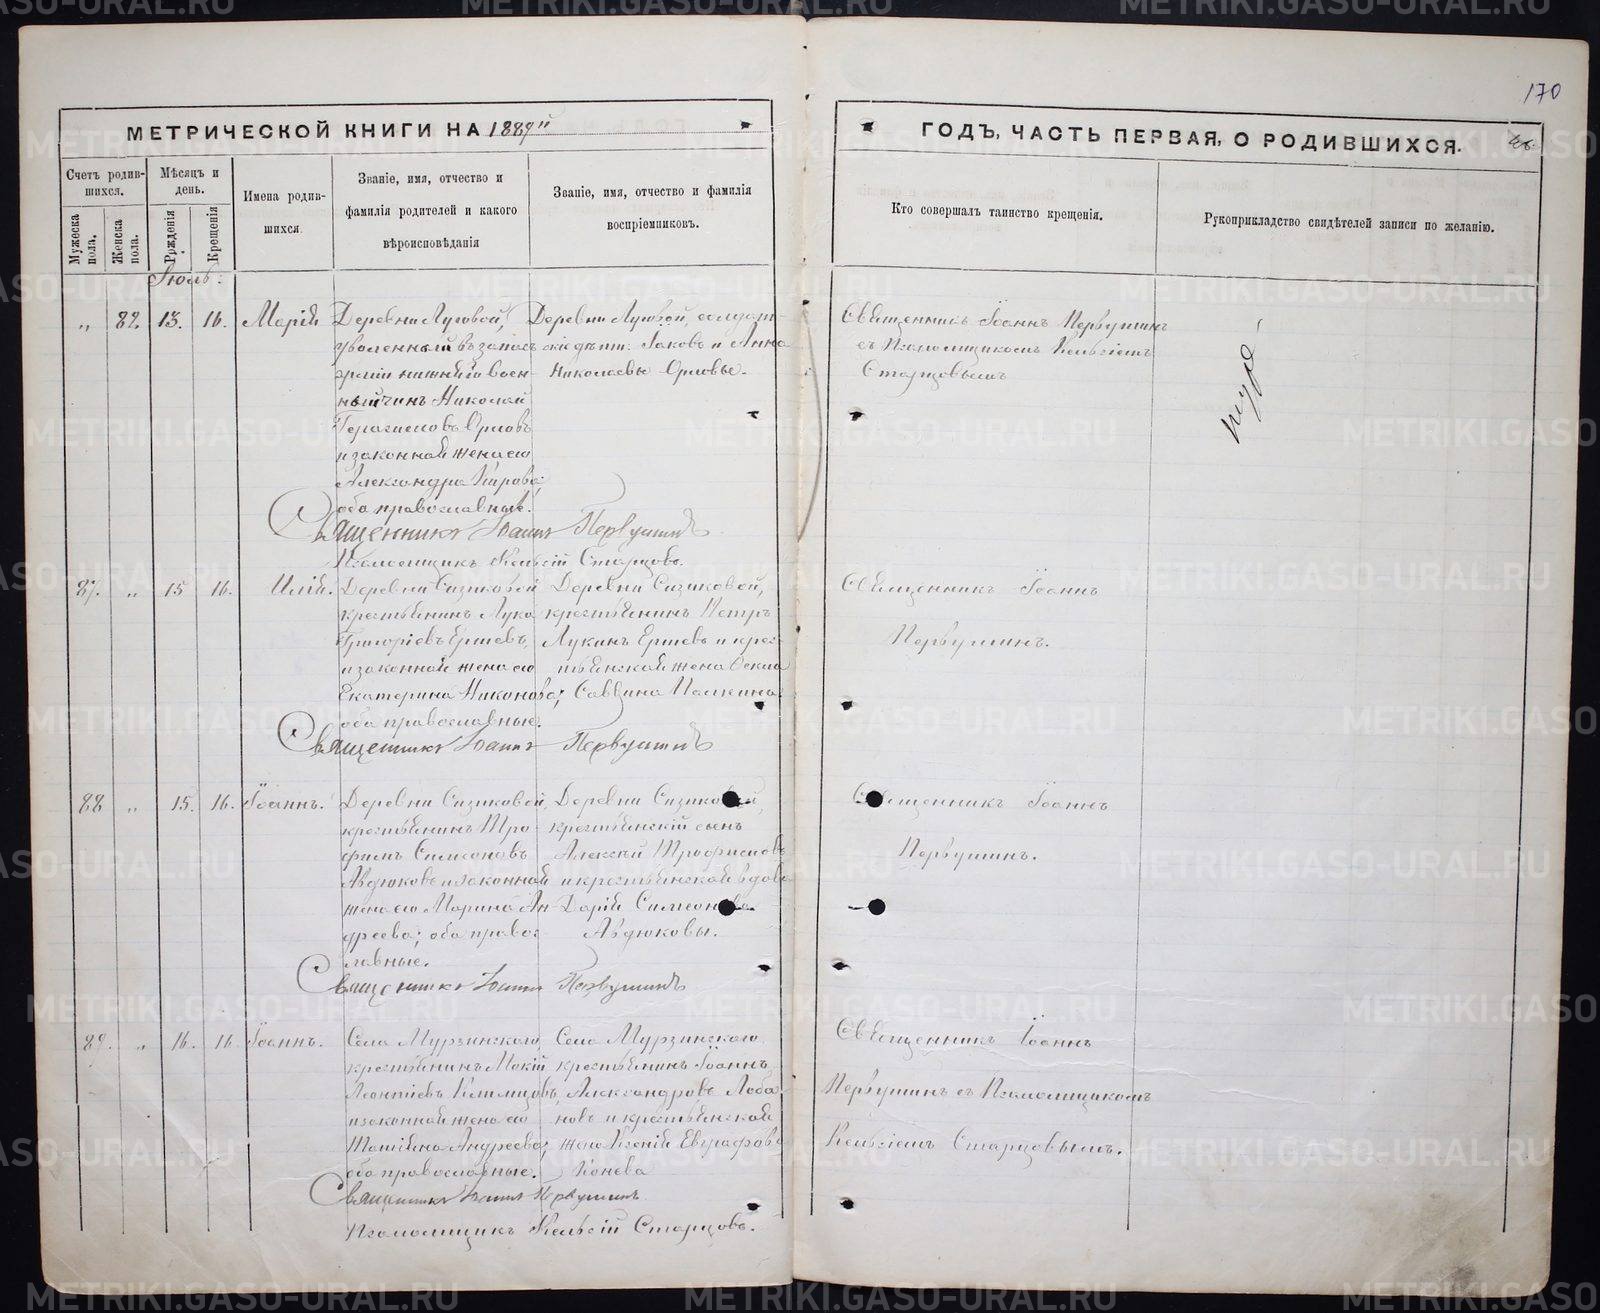 170
МЕТРИЧЕСКОЙ КНИГИ НА 1889й
ГОДЪ, ЧАСТЬ ПЕРВАЯ, О РОДИВШИХСЯ.
Счетъ родив-
шихся.
Мужеска пола.
Женска пола.
Мѣсяцъ и
день.
Рожденія
Крещенія
Имена родив-
шихся.
Званіе, имя, отчество и
фамилія родителей и какого
вѣроисповѣданія
Званіе, имя, отчество и фамилія
воспріемниковъ.
Кто совершалъ таинство крещенія.
Рукоприкладство свидѣтелей записи по желанію.
Іюль:
„ 82. 13. 16. Марія
Деревни Луговой,
уволенный въ запасъ
арміи нижній воен-
ный чинъ Николай
Герасимовъ Орловъ
и законная жена его
Александра
оба православные.
Деревни Луговой, солдат-
скіе дѣти: Іаковъ и Анна
Николаевы Орловы.
Священникъ Іоаннъ Первушинъ
съ Псаломщикомъ Кельсіемъ
Старцовымъ
Священникъ Іоаннъ Первушинъ
Псаломщикъ Кельсій Старцовъ.
87. „ 15 16. Илія.
Деревни Сизиковой
крестьянинъ Лука
Григоріевъ Ершевъ,
и законная жена его
Екатерина Никонова;
оба православные.
Деревни Сизиковой,
крестьянинъ Петръ
Лукинъ Ершевъ и крес-
тьянская жена Секла
Саввина
Священникъ Іоаннъ
Первушинъ.
Священникъ Іоаннъ Первушинъ
88 „ 15. 16. Іоаннъ.
Деревни Сизиковой,
крестьянинъ Тро-
фимъ Симеоновъ
Авдюковъ и законная
жена его Марина Ан-
дреева; оба правос-
лавные.
Деревни Сизиковой,
крестьянскій сынъ
Алексѣй Трофимовъ
и крестьянская вдова
Дарія Симеонова
Авдюковы.
Священникъ Іоаннъ
Первушинъ.
Священникъ Іоаннъ Первушинъ
89. „ 16. 16 Іоаннъ.
Села Мурзинскаго,
крестьянинъ Мокій
Леонтіевъ
и законная жена его
Татіана Андреева;
оба православные.
Села Мурзинскаго
крестьянинъ Іоаннъ
Александровъ Лоба-
новъ и крестьянская
жена Ксенія Евграфова
Конева
Священникъ Іоаннъ
Первушинъ съ Псаломщикомъ
Кельсіемъ Старцовымъ.
Священникъ Іоаннъ Первушинъ
Псаломщикъ Кельсій Старцовъ.
METRIKI.GASO-URAL.RU